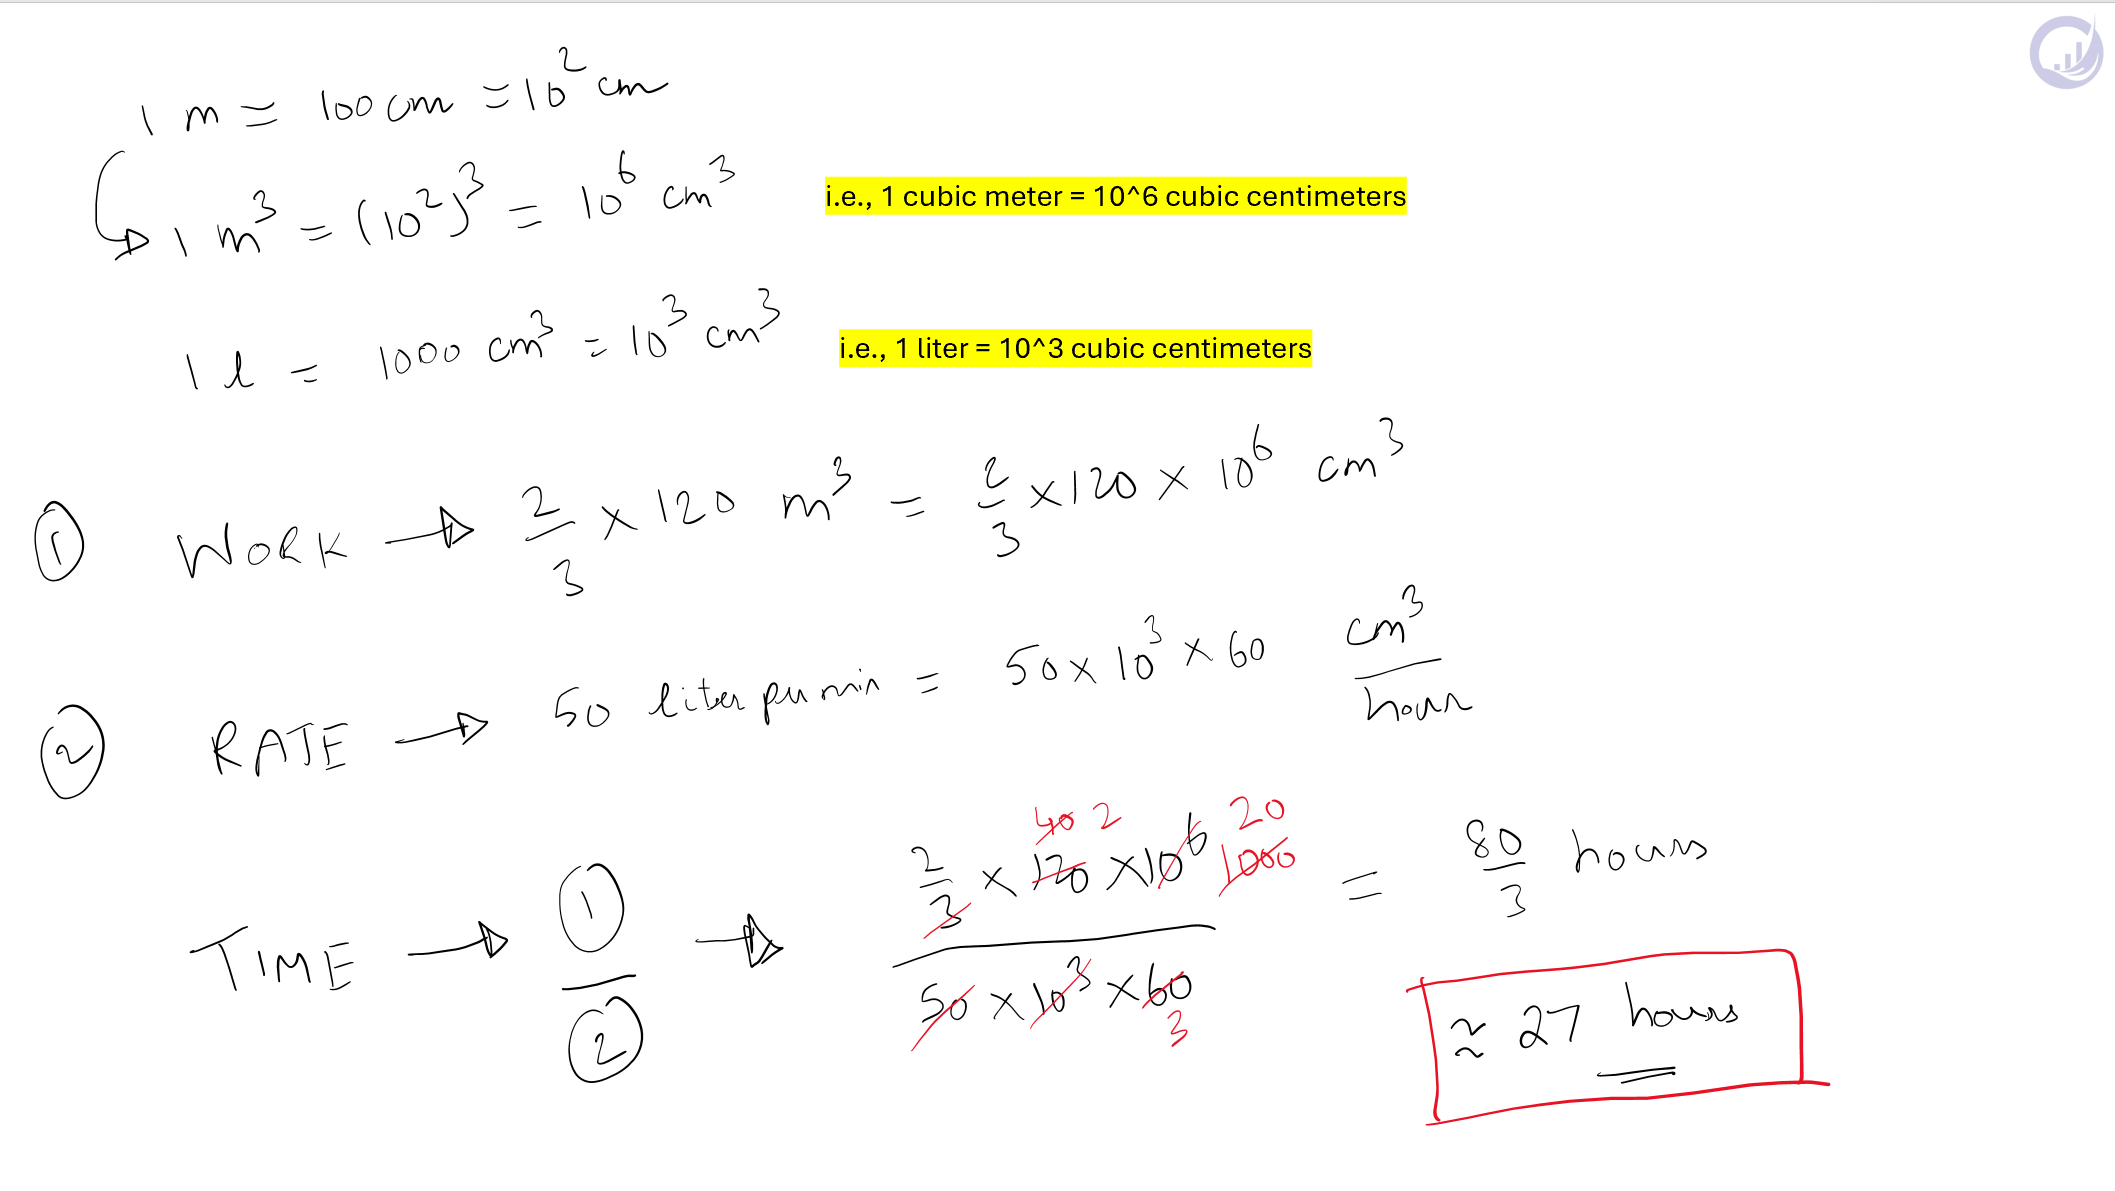 1 m = 100 cm = 10² cm
1 m³ = (10²)³ = 10⁶ cm³
i.e., 1 cubic meter = 10^6 cubic centimeters
1 l = 1000 cm³ = 10³ cm³
i.e., 1 liter = 10^3 cubic centimeters
① WORK → 2/3 × 120 m³ = 2/3 × 120 × 10⁶ cm³
② RATE → 50 liter per min = 50 × 10³ × 60 cm³/hour
40 2 20
TIME → ①/② → 2/3 × 120 × 10⁶ 1000 / 50 × 10³ × 60 = 80/3 hours
3
≈ 27 hours